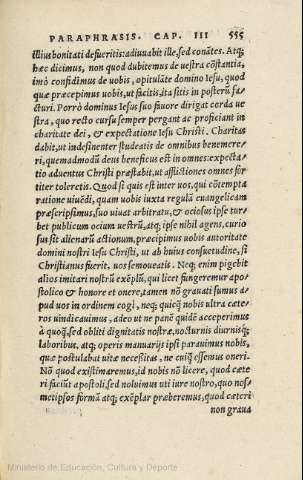 PARAPHRASIS. CAP. III 555
illius bonitati desueritis: adiuuabit ille, sed conātes. Atq;
hæc dicimus, non quod dubitemus de uestra cōstantia,
imò cōfidimus de uobis, opitulāte domino Iesu, quod
quæ præcepimus uobis, ut facitis, ita sitis in posterū fa-
cturi. Porrò dominus Iesus suo fauore dirigat corda ue
stra, quo recto cursu semper pergant ac proficiant in
charitate dei, & expectatione Iesu Christi. Charitas
dabit, ut indesinenter studeatis de omnibus benemere-
ri, quemadmodū deus beneficus est in omnes: expecta-
tio aduentus Christi præstabit, ut afflictiones omnes for
titer toleretis. Quod si quis est inter uos, qui cōtempta
ratione uiuēdi, quam uobis iuxta regulā euangelicam
præscripsimus, suo uiuat arbitratu, & ociosus ipse tur-
bet publicum ocium uestrū, atq; ipse nihil agens, curio
sus sit alienarū actionum, præcipimus uobis autoritate
domini nostri Iesu Christi, ut ab huius consuetudine, si
Christianus fuerit, uos semoueatis. Neq; enim pigebit
alios imitari nostrū exēplū, qui licet fungeremur apo-
stolico & honore et onere, tamen nō grauati sumus a-
pud uos in ordinem cogi, neq; quicq̄ nobis ultra cæte-
ros uindicauimus, adeo ut ne panē quidē acceperimus
à quoq̄, sed obliti dignitatis nostræ, nocturnis diurnisq;
laboribus, atq; operis manuarijs ipsi parauimus nobis,
quæ postulabat uitæ necessitas, ne cuiq̄ essemus oneri.
Nō quod existimaremus, id nobis nō licere, quod cæte
ri faciūt apostoli, sed noluimus uti iure nostro, quo nos-
metipsos formā atq; exēplar præberemus, quod cæteri
non graua
Ministerio de Educación, Cultura y Deporte